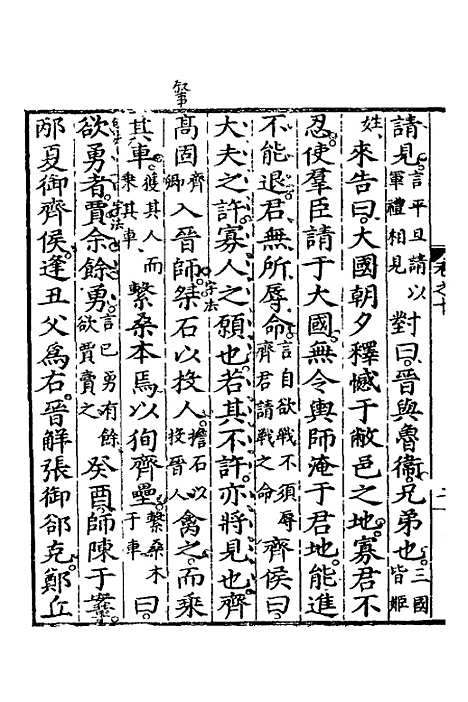 請見言平旦請以軍禮相見對曰晉與魯衞兄弟也三國皆姬
姓來告曰大國朝夕釋憾于敝邑之地寡君不
忍使羣臣請于大國無令輿師淹于君地能進
不能退君無所辱命言自欲戰不須辱齊君請戰之命齊侯曰
大夫之許寡人之願也若其不許亦將見也齊
高固齊卿入晉師桀石以投人擔石以投晉人禽之而乘
其車獲其人而乘其車繫桑本焉以徇齊壘繫桑木于車曰
欲勇者賈余餘勇言已勇有餘欲賈賣之癸酉師陳于鞌
邴夏御齊侯逢丑父爲右晉解張御郤克鄭丘
敍事
字法
字法